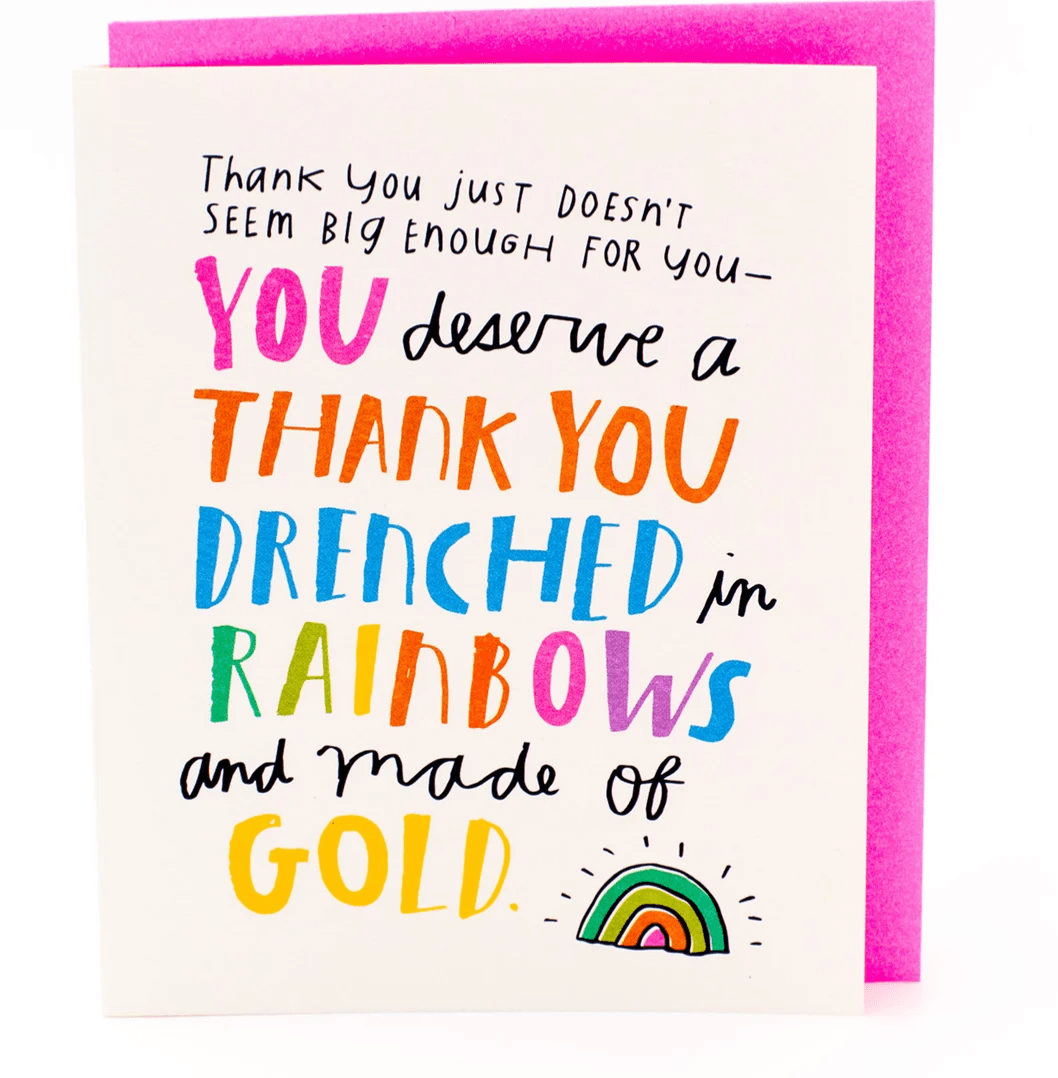 Thank you just DOESn'T
SEEM BIg EnOUGH FOR you—
YOU deserve a
THAnK YOU
DREnCHED in
RAInBOWS
and made of
GOLD.